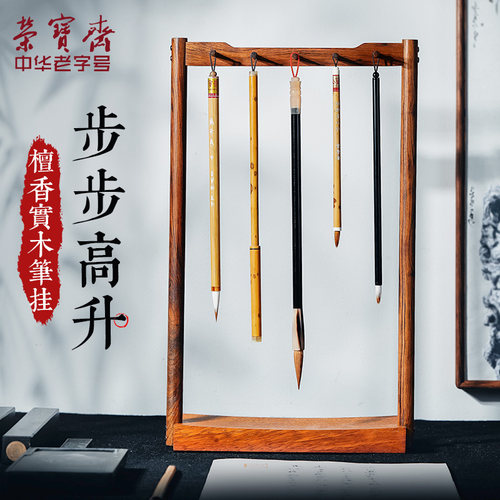 榮寶齋
中华老字号
步步高升
檀香實木筆挂